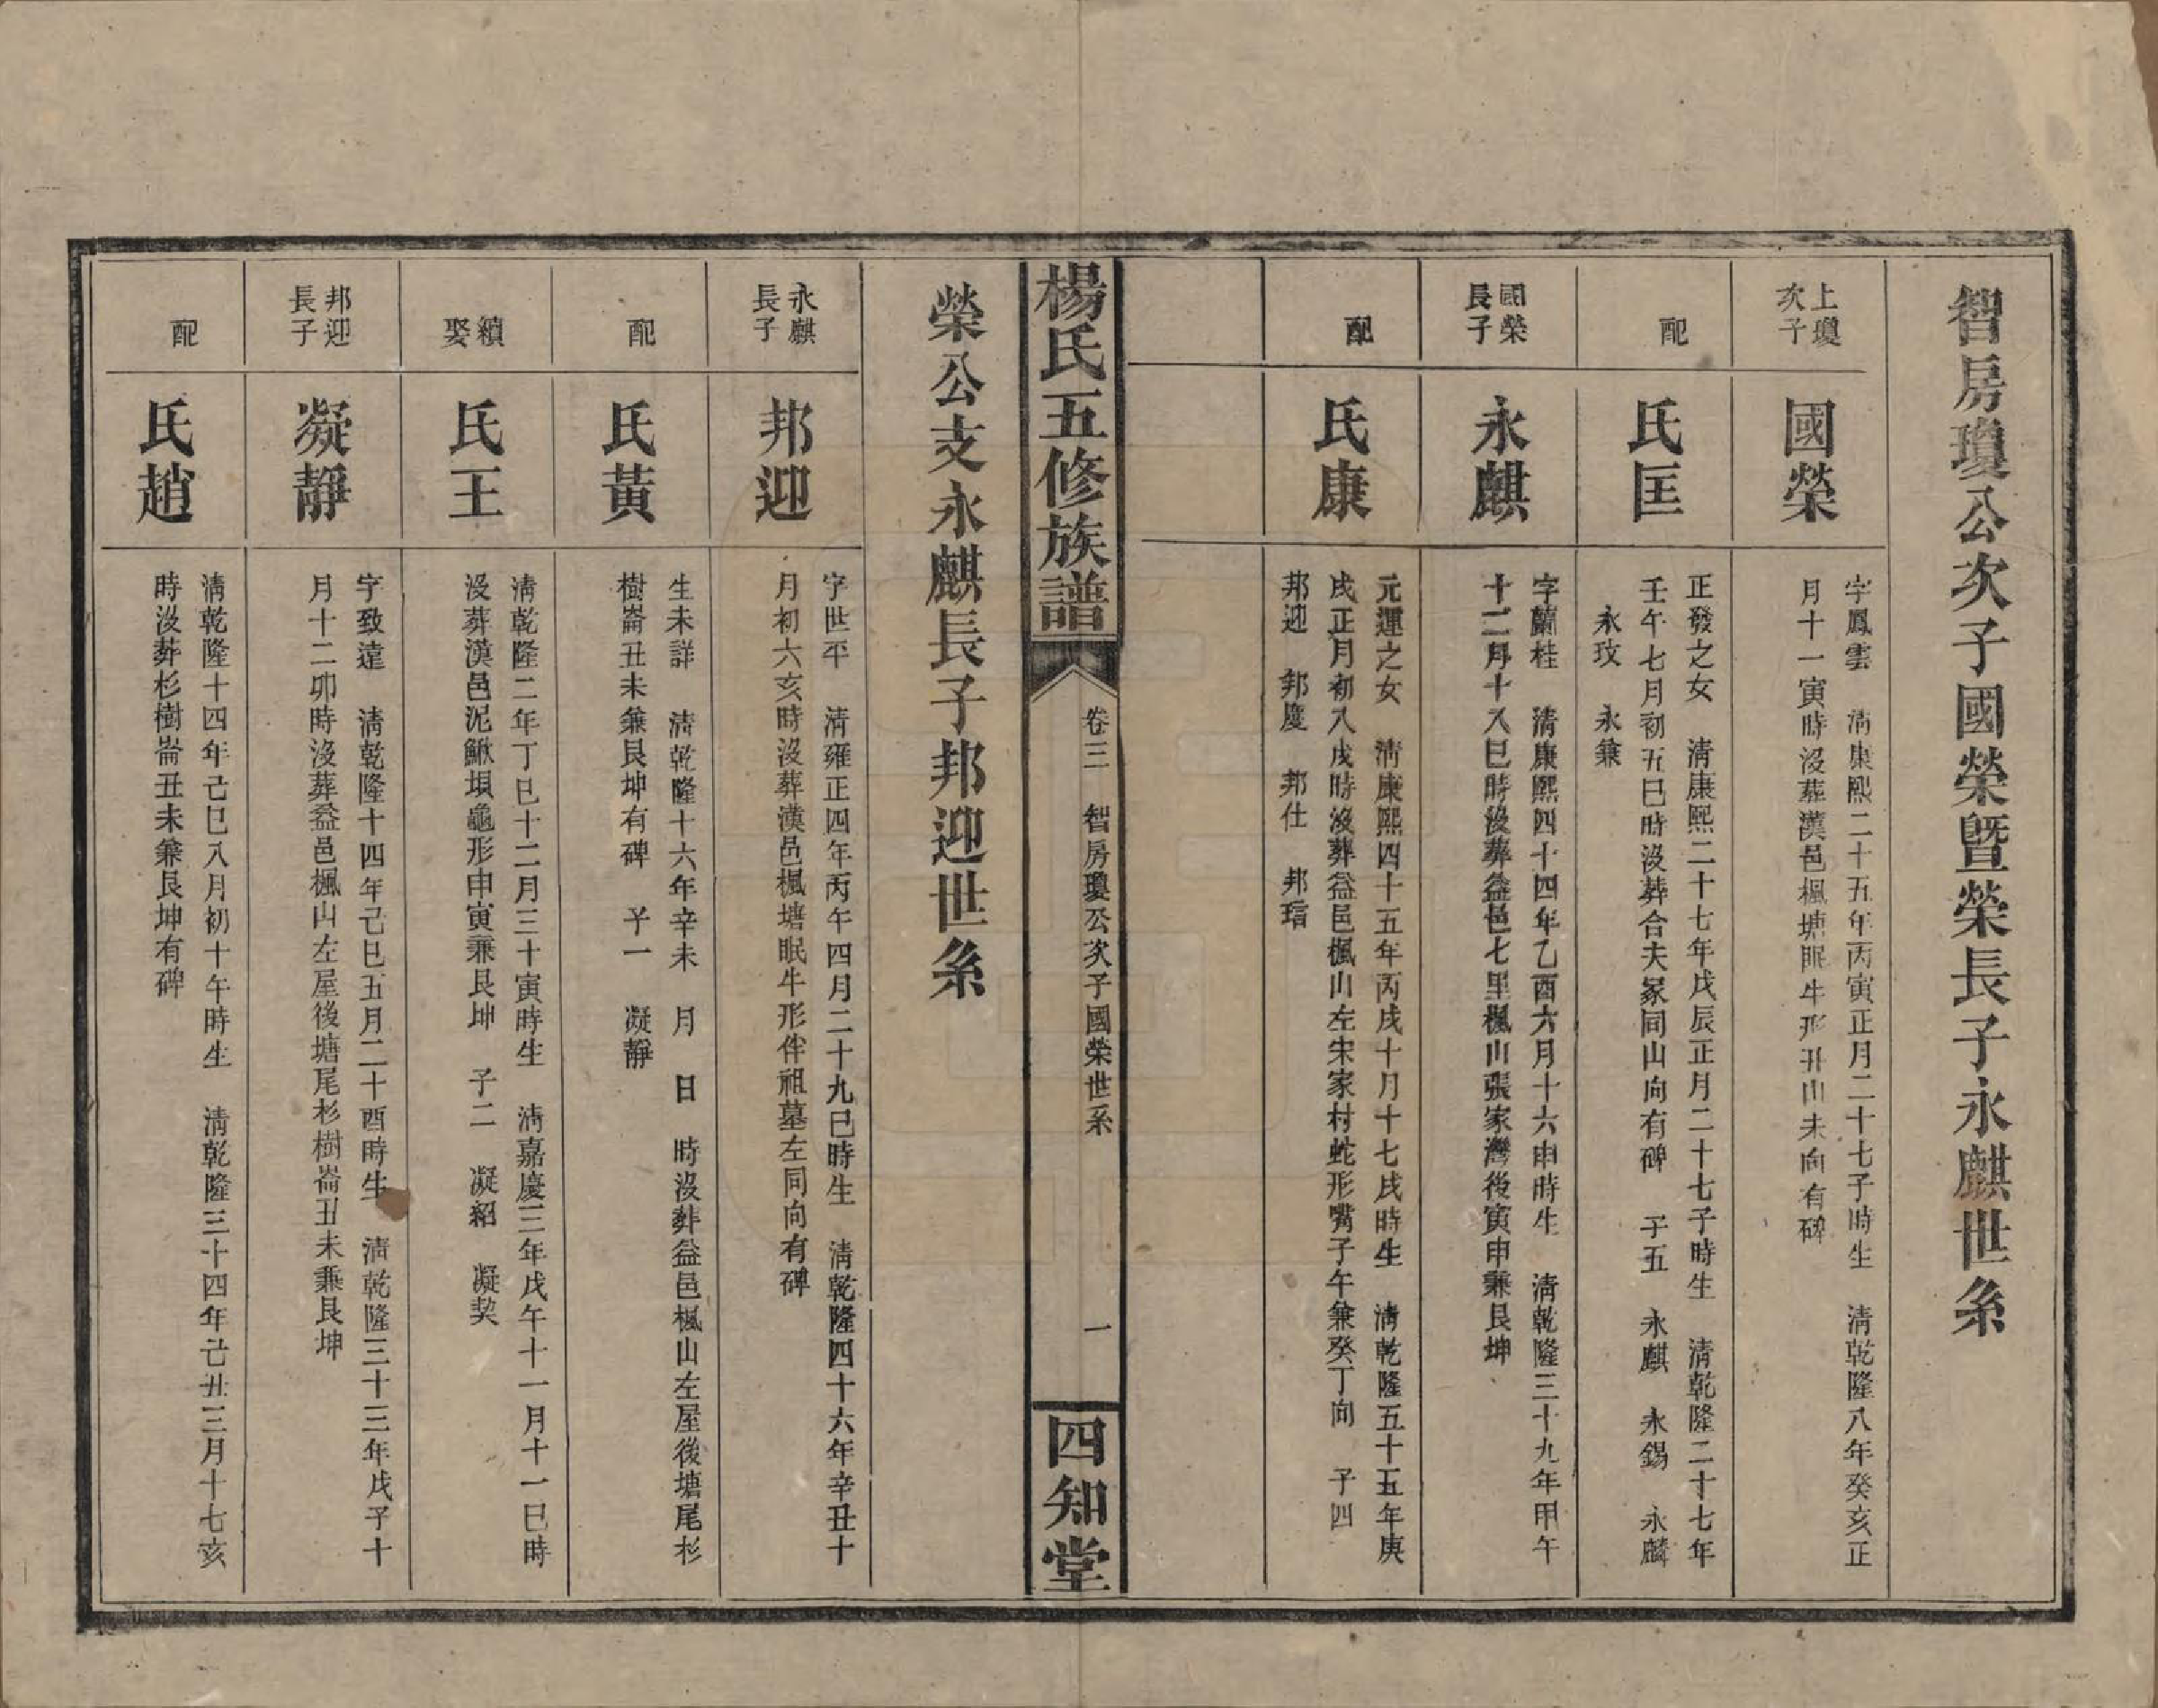 智房瓊公次子國榮暨榮長子永麒世系
上瓊
次子
國榮
字鳳雲　清康熙二十五年丙寅正月二十七子時生　清乾隆八年癸亥正
月十一寅時沒葬漢邑楓塘眠牛形丑山未向有碑
配
氏匡
正發之女　清康熙二十七年戊辰正月二十七子時生　清乾隆二十七年
壬午七月初五巳時沒葬合夫冢同山向有碑　子五　永麒　永錫　永麟
永玟　永兼
國榮
長子
永麒
字蘭桂　清康熙四十四年乙酉六月十六申時生　清乾隆三十九年甲午
十二月十八巳時沒葬益邑七里楓山張家灣後寅申兼艮坤
配
氏康
元運之女　清康熙四十五年丙戌十月十七戌時生　清乾隆五十五年庚
戌正月初八戌時沒葬益邑楓山左宋家村蛇形嘴子午兼癸丁向　子四
邦迎　邦慶　邦仕　邦瑨
楊氏五修族譜
卷三　智房瓊公次子國榮世系
一
四知堂
榮公支永麒長子邦迎世系
永麒
長子
邦迎
字世平　清雍正四年丙午四月二十九巳時生　清乾隆四十六年辛丑十
月初六亥時沒葬漢邑楓塘眠牛形伴祖墓左同向有碑
配
氏黃
生未詳　清乾隆十六年辛未　月　日　時沒葬益邑楓山左屋後塘尾杉
樹崙丑未兼艮坤有碑　子一　凝靜
續
娶
氏王
清乾隆二年丁巳十二月三十寅時生　清嘉慶三年戊午十一月十一巳時
沒葬漢邑泥鰍垻龜形申寅兼艮坤　子二　凝紹　凝契
邦迎
長子
凝靜
字致遠　清乾隆十四年己巳五月二十酉時生　清乾隆三十三年戊子十
月十二卯時沒葬益邑楓山左屋後塘尾杉樹崙丑未兼艮坤
配
氏趙
清乾隆十四年己巳八月初十午時生　清乾隆三十四年己丑三月十七亥
時沒葬杉樹崙丑未兼艮坤有碑